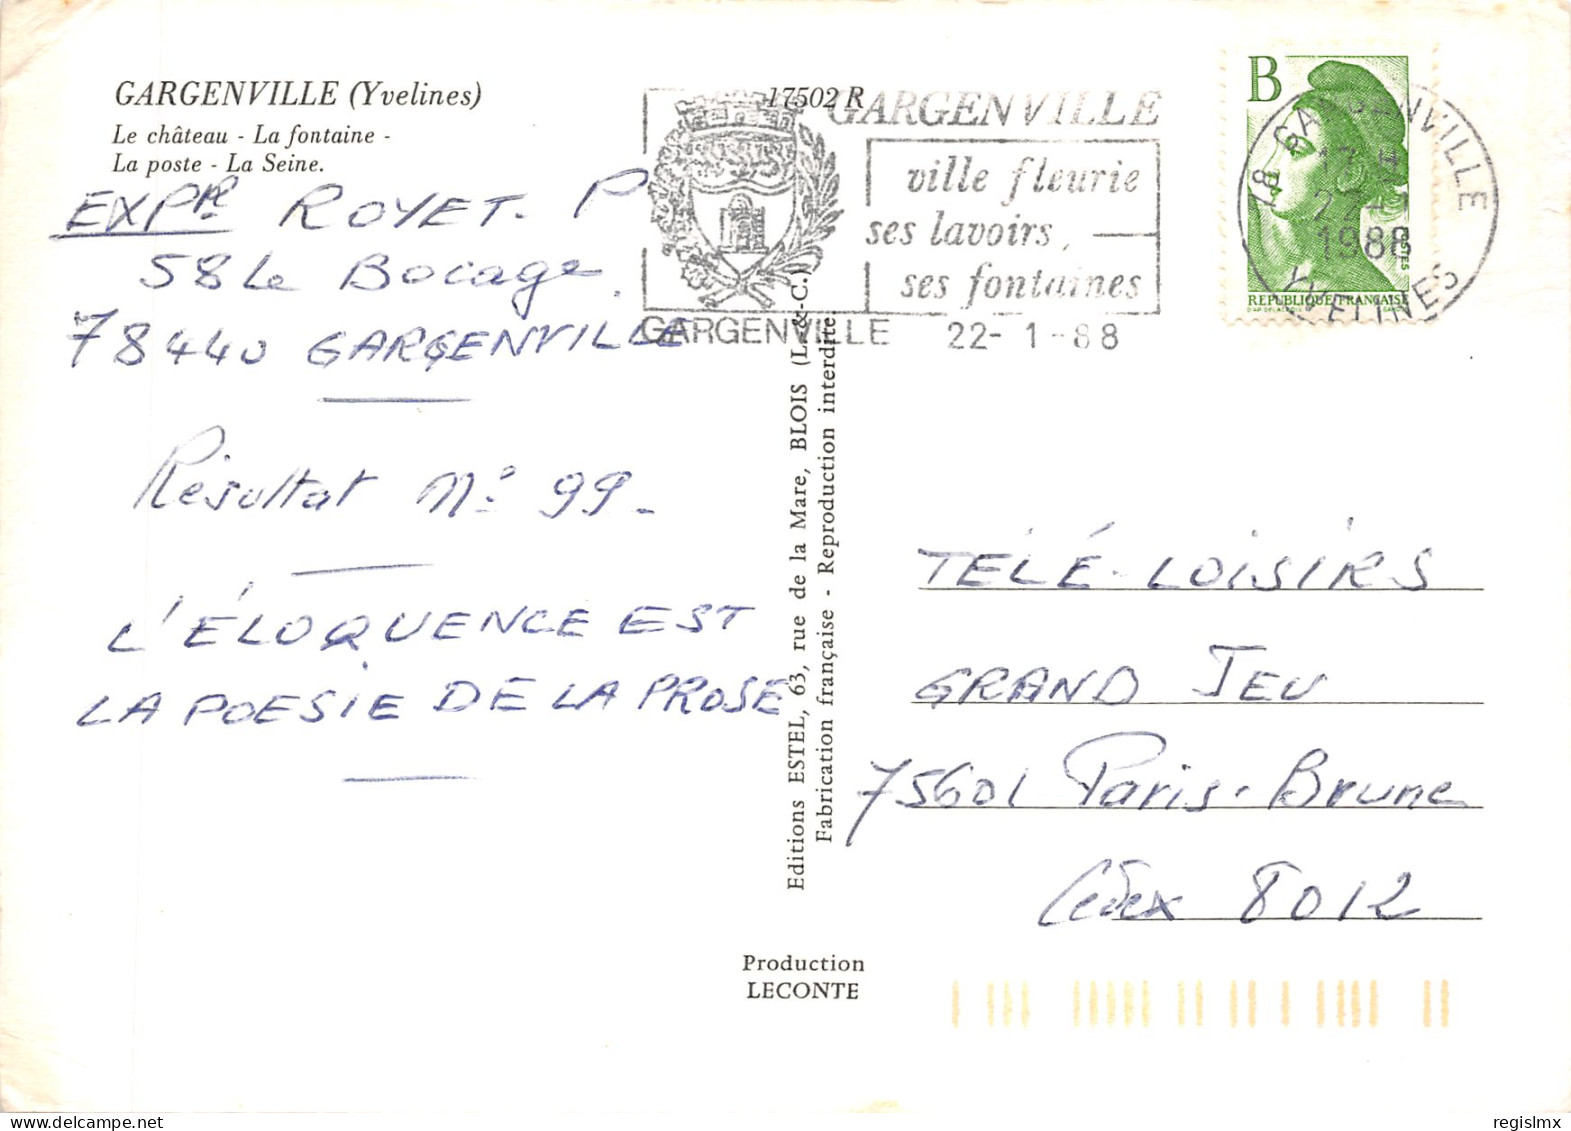 GARGENVILLE (Yvelines)
Le château - La fontaine -
La poste - La Seine.
17502 R
GARGENVILLE
ville fleurie
ses lavoirs,
ses fontaines
GARGENVILLE 22-1-88
B
78 GARGENVILLE
22-1
1988
YVELINES
POSTES
REPUBLIQUE FRANÇAISE
EXPR ROYET. P
58 Le Bocage.
78440 GARGENVILLE
Résultat N° 99 -
L'ÉLOQUENCE EST
LA POESIE DE LA PROSE
Editions ESTEL, 63, rue de la Mare, BLOIS (L.-&-C.)
Fabrication française - Reproduction interdite.
TÉLÉ-LOISIRS
GRAND JEU
75601 Paris-Brune
Cedex 8012
Production
LECONTE
regislmx